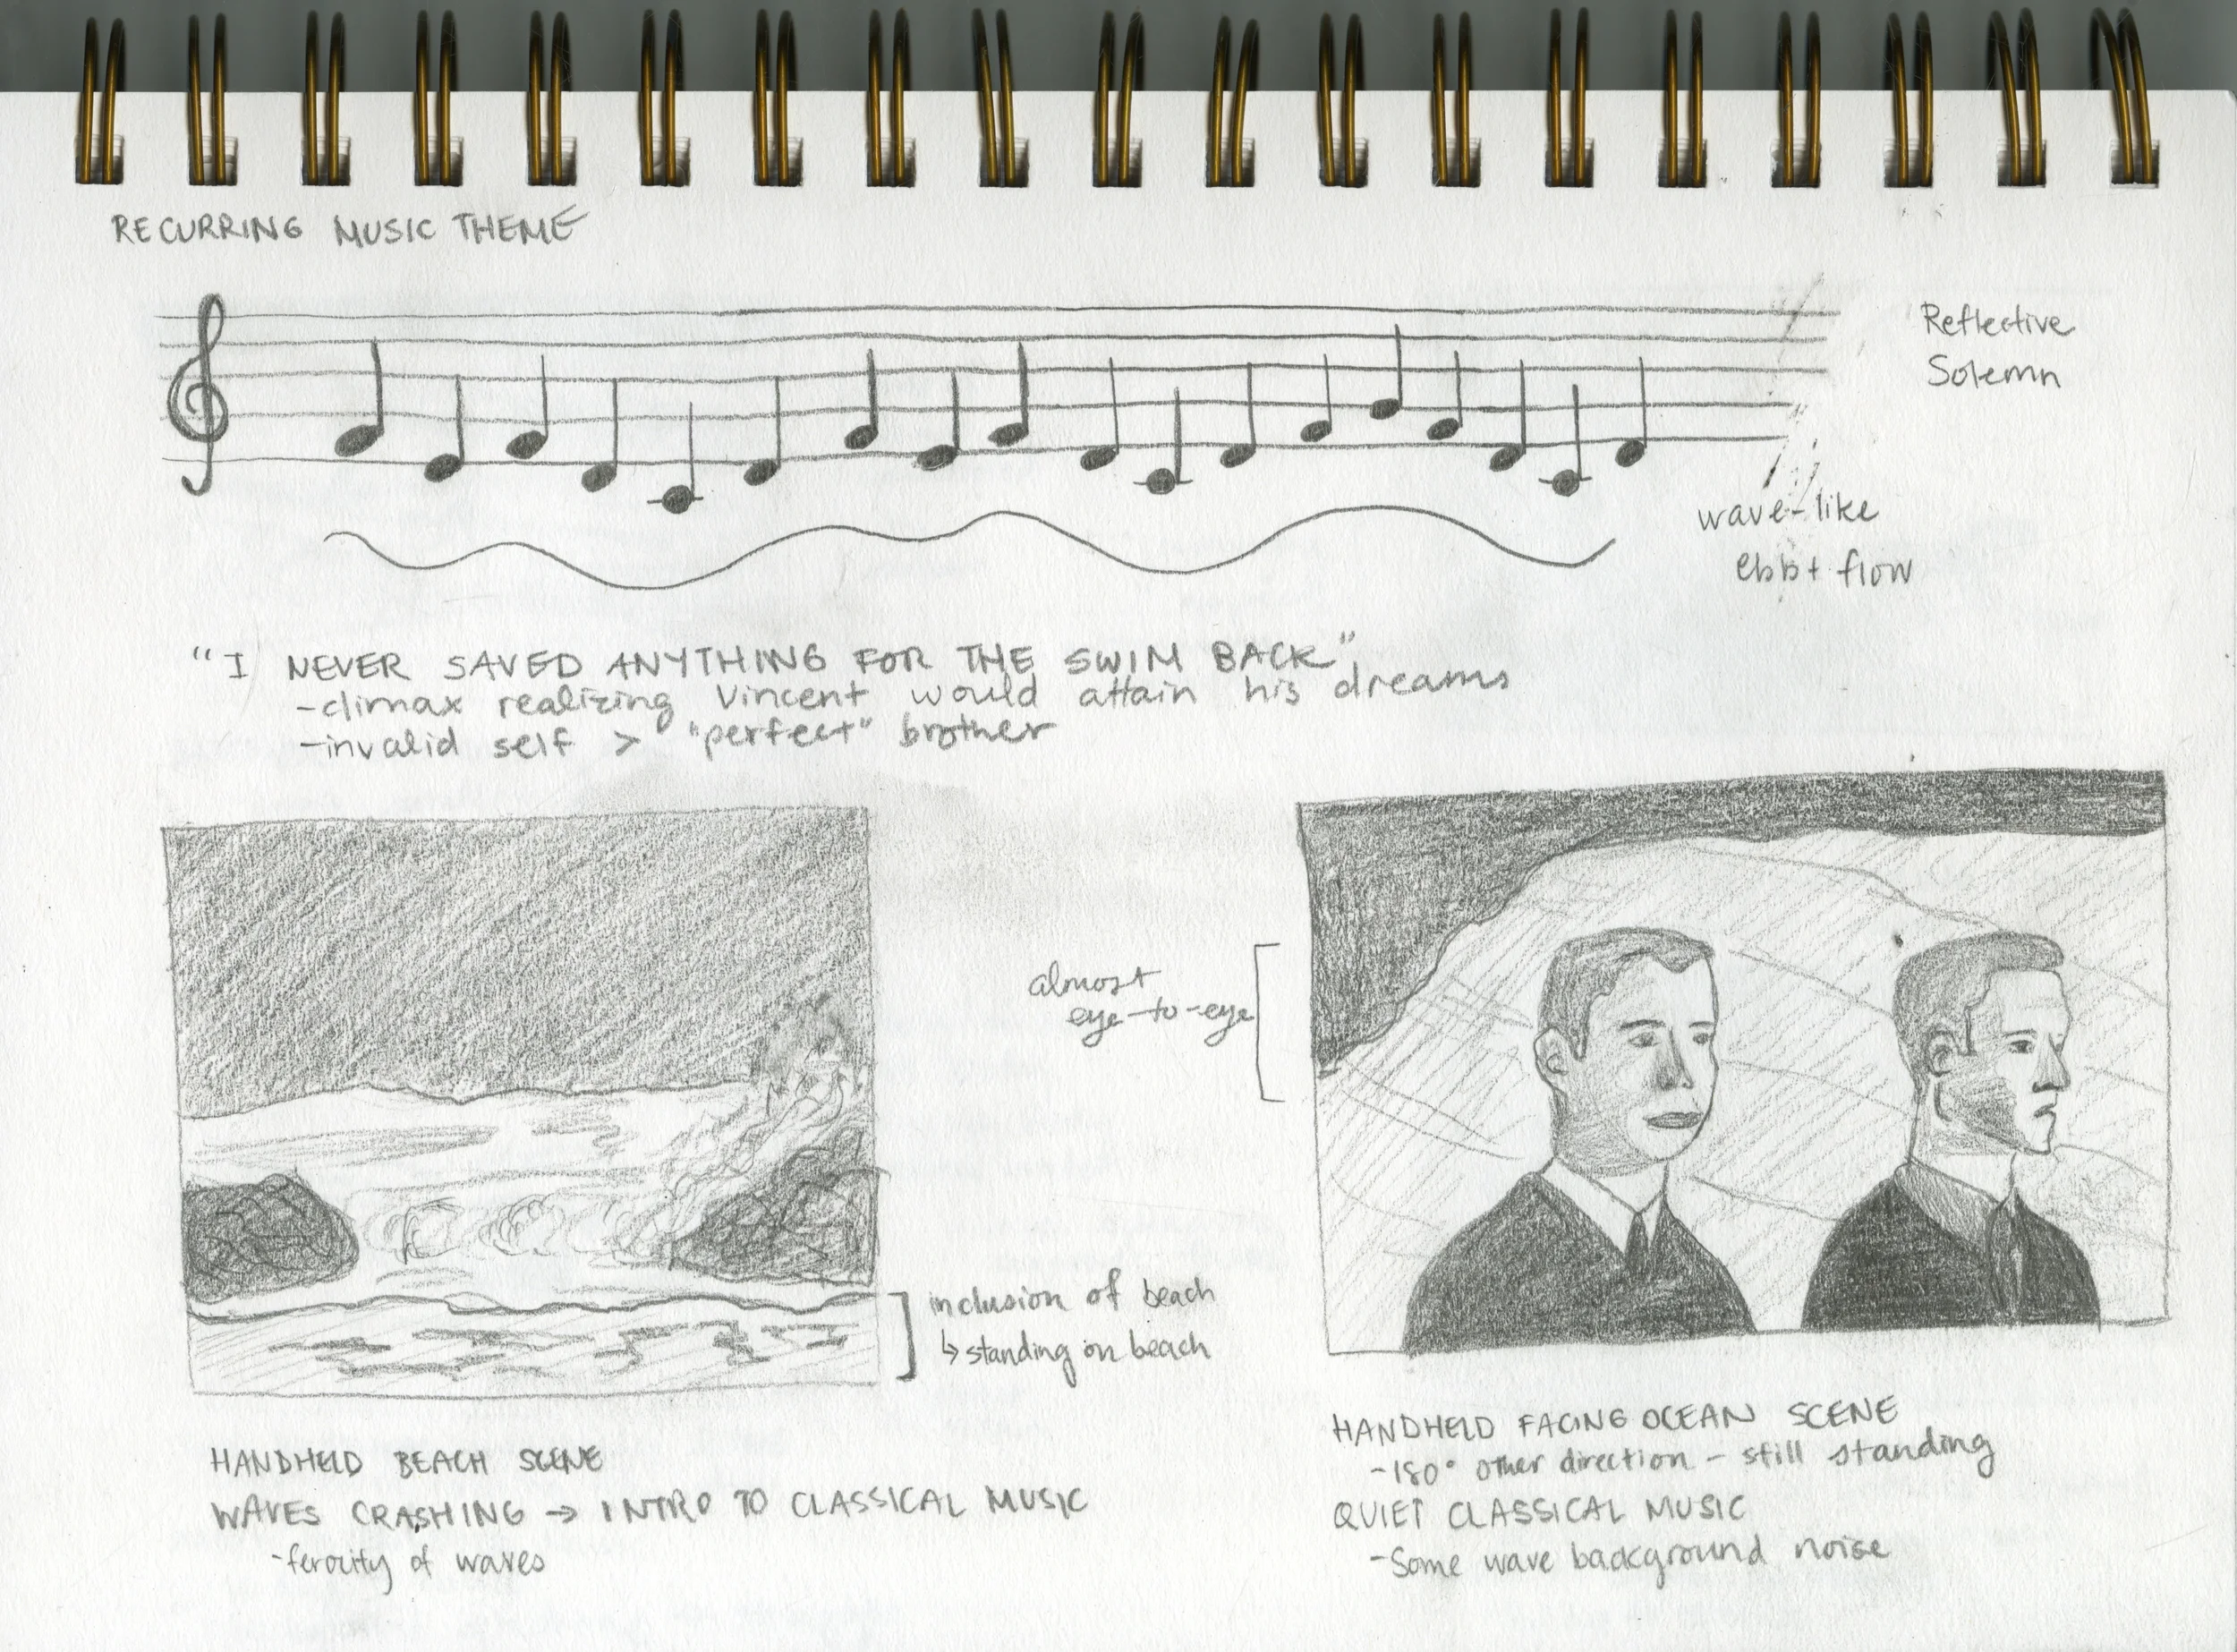 RECURRING MUSIC THEME
Reflective
Solemn
wave-like
ebb + flow
"I NEVER SAVED ANYTHING FOR THE SWIM BACK"
-climax realizing Vincent would attain his dreams
-invalid self > "perfect" brother
almost
eye-to-eye
inclusion of beach
↳ standing on beach
HANDHELD BEACH SCENE
WAVES CRASHING → INTRO TO CLASSICAL MUSIC
-ferocity of waves
HANDHELD FACING OCEAN SCENE
-180° other direction - still standing
QUIET CLASSICAL MUSIC
-Some wave background noise